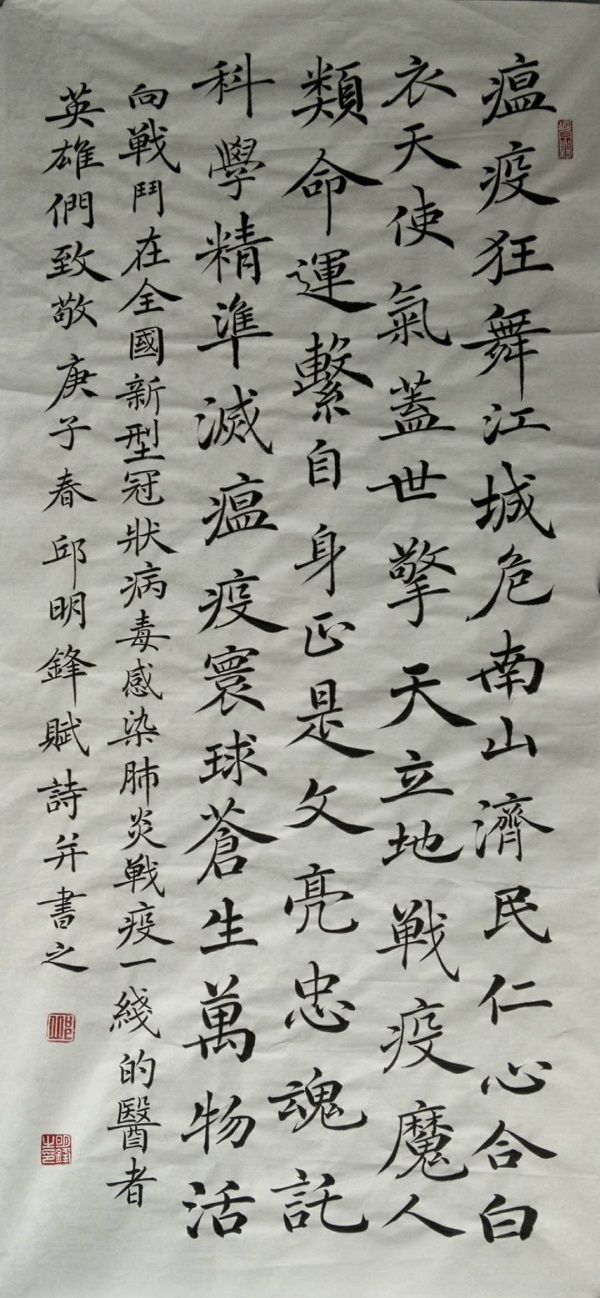 瘟疫狂舞江城危南山濟民仁心合白
衣天使氣蓋世擎天立地戰疫魔人
類命運繫自身正是文亮忠魂託
科學精準滅瘟疫寰球蒼生萬物活
向戰鬥在全國新型冠狀病毒感染肺炎戰疫一綫的醫者
英雄們致敬庚子春邱明鋒賦詩并書之